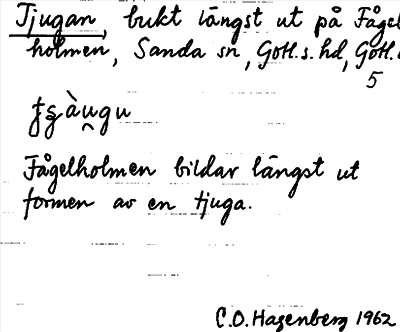 Tjugan, bukt längst ut på Fågel
holmen, Sanda sn, Gotl. s. hd, Gotl.
5
Fågelholmen bildar längst ut
formen av en tjuga.
C.O. Hagenberg 1962